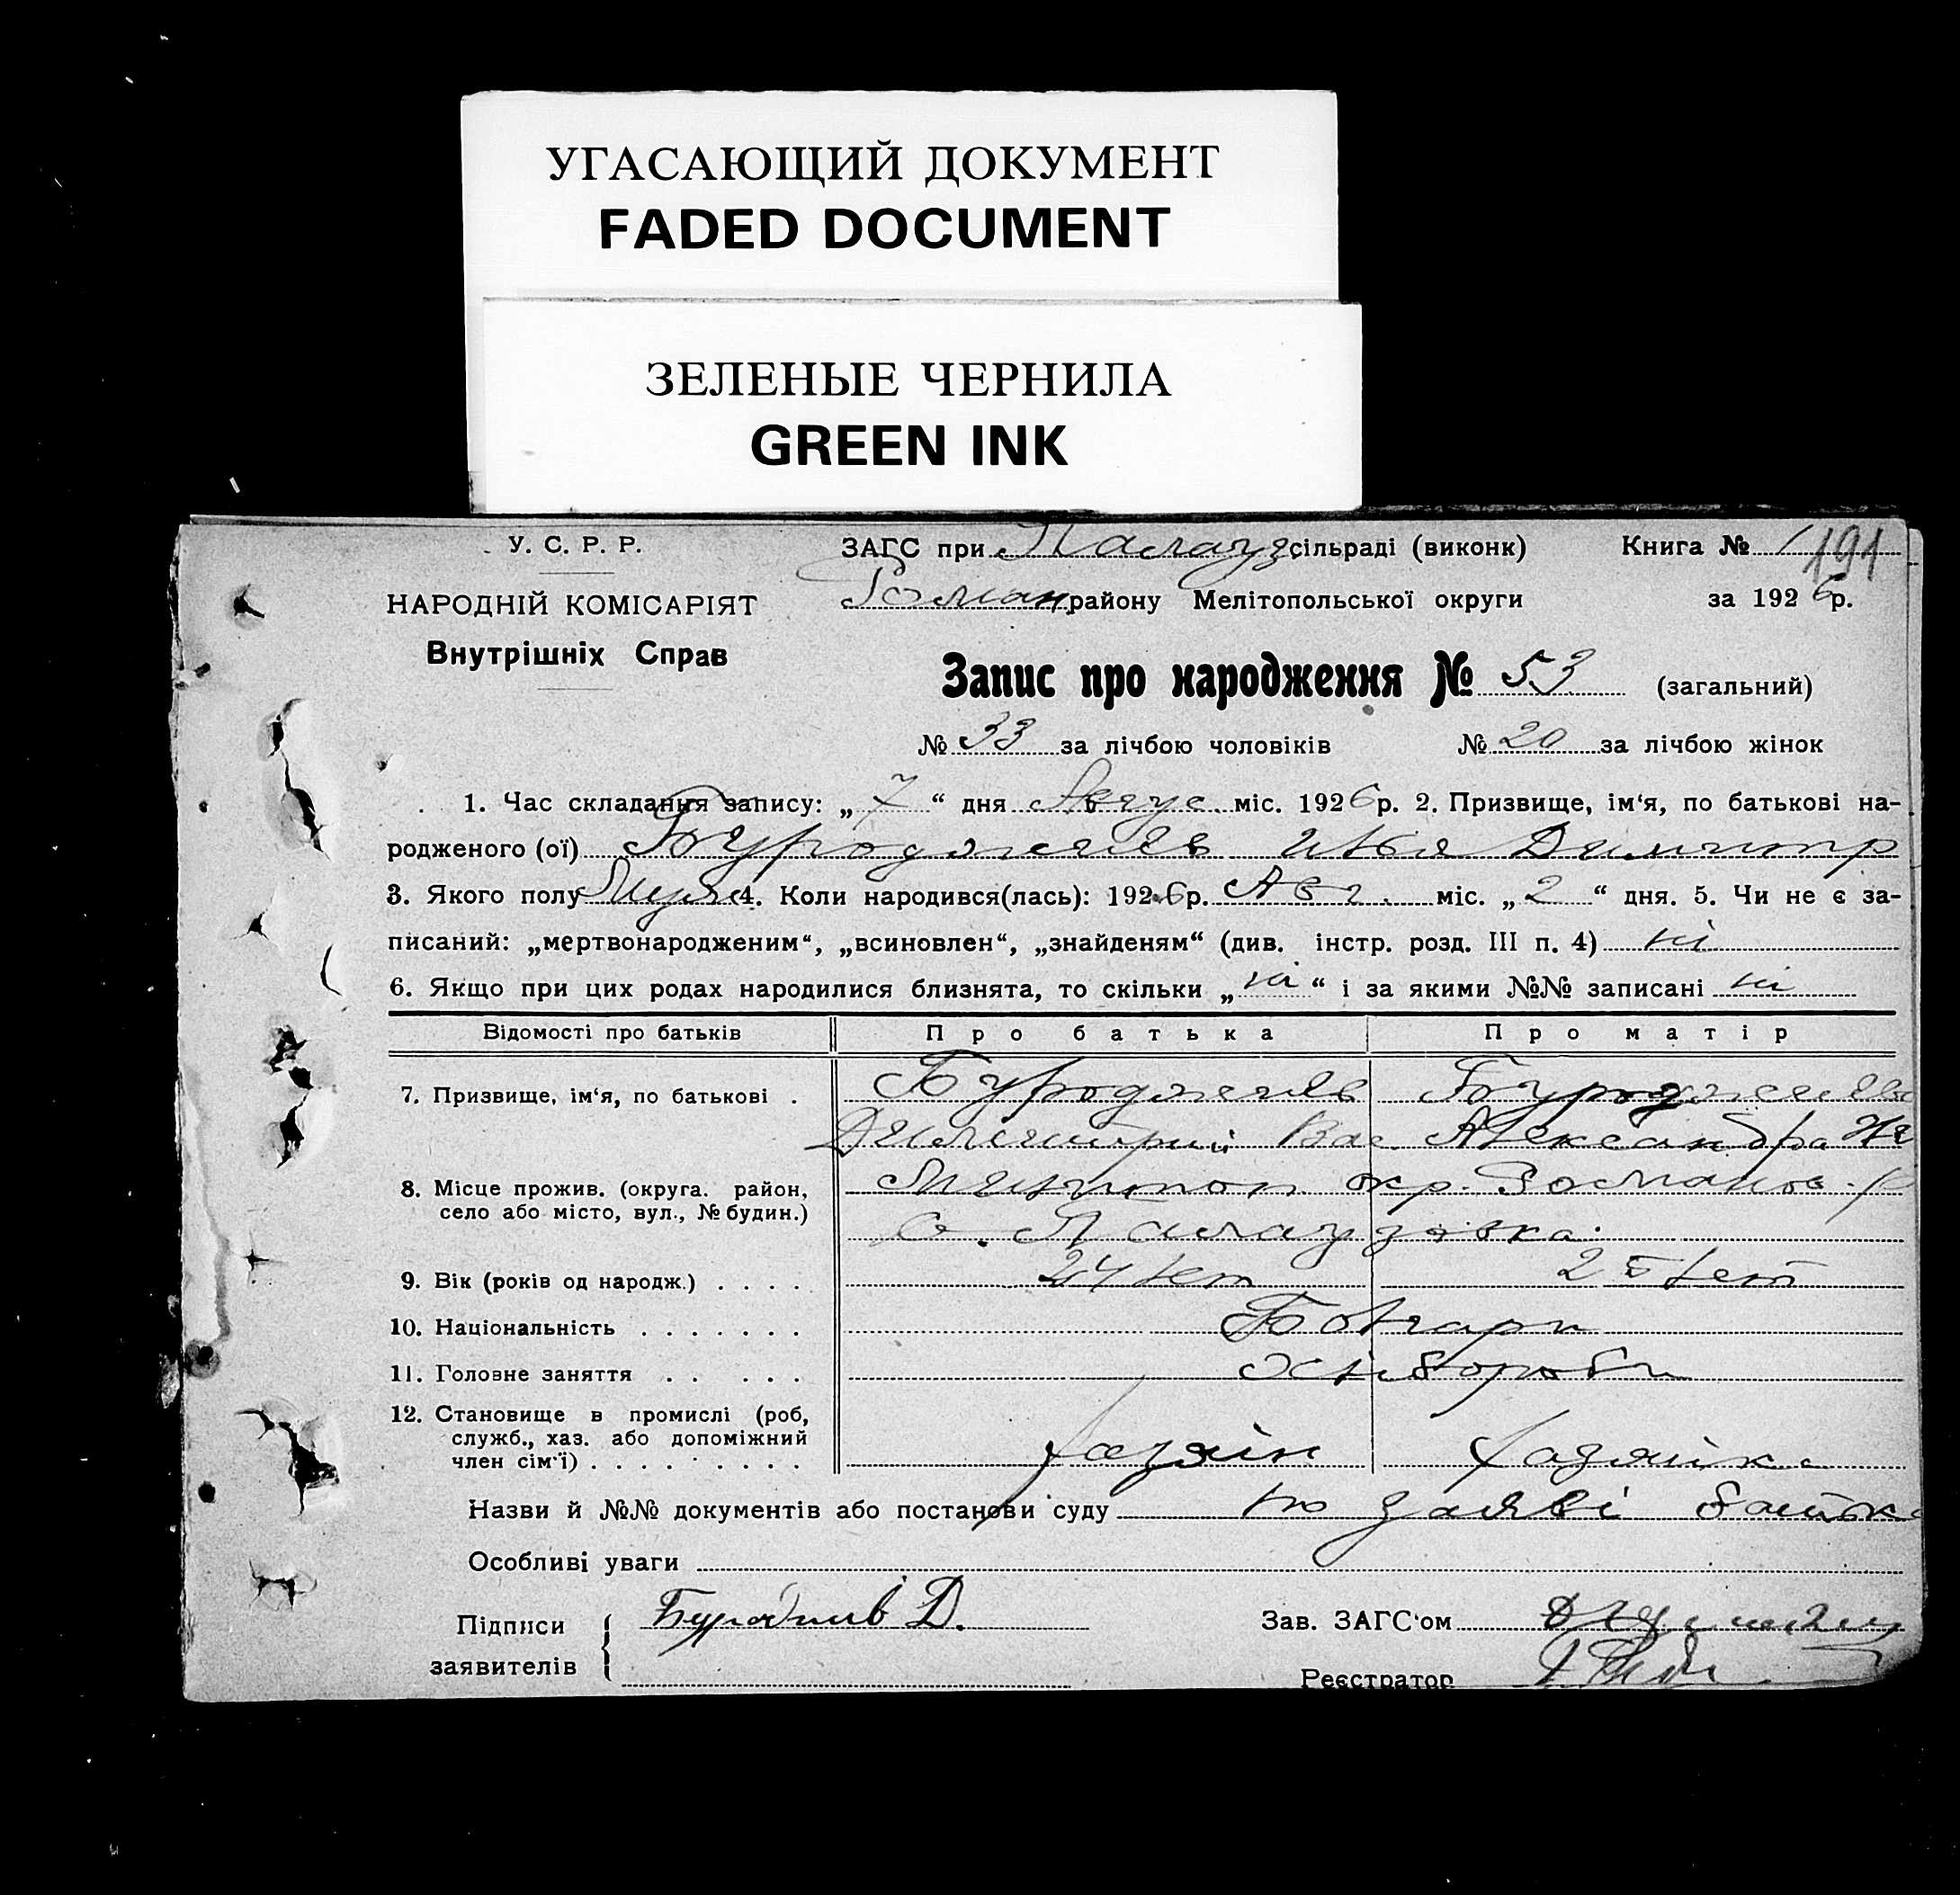 УГАСАЮЩИЙ ДОКУМЕНТ
FADED DOCUMENT
ЗЕЛЕНЫЕ ЧЕРНИЛА
GREEN INK
У. С. Р. Р. ЗАГС при Палауз. сільраді (виконк) Книга № 1 191
НАРОДНІЙ КОМІСАРІЯТ району Мелітопольської округи за 1926р.
Внутрішніх Справ
Запис про народження № 53 (загальний)
№ 33 за лічбою чоловіків № 20 за лічбою жінок
1. Час складання запису: „7“ дня Август. міс. 1926р. 2. Призвище, ім‘я, по батькові на-
родженого (ої) Буроджиєв Илья Димитр
3. Якого полу Мужс 4. Коли народився(лась): 1926р. Авг. міс. „2“ дня. 5. Чи не є за-
писаний: „мертвонародженим“, „всиновлен“, „знайденям“ (див. інстр. розд. III п. 4) ні
6. Якщо при цих родах народилися близнята, то скільки „ні“ і за якими №№ записані ні
Відомості про батьків Про батька Про матір
7. Призвище, ім‘я, по батькові .
Димитрий Вас. Александра
8. Місце прожив. (округа. район, окр.
село або місто, вул., № будин.) с. Палаузовка.
9. Вік (років од народж.) . . . . 24 лет 25 лет
10. Національність . . . . . . . Болгари
11. Головне заняття . . . . . Хлібороби
12. Становище в промислі (роб,
служб., хаз. або допоміжний
член сім‘ї) . . . . . . . . . хазяін хазяйка
Назви й №№ документів або постанови суду по заяві батька
Особливі уваги
Підписи Д. Зав. ЗАГС‘ом
заявителів Реєстратор